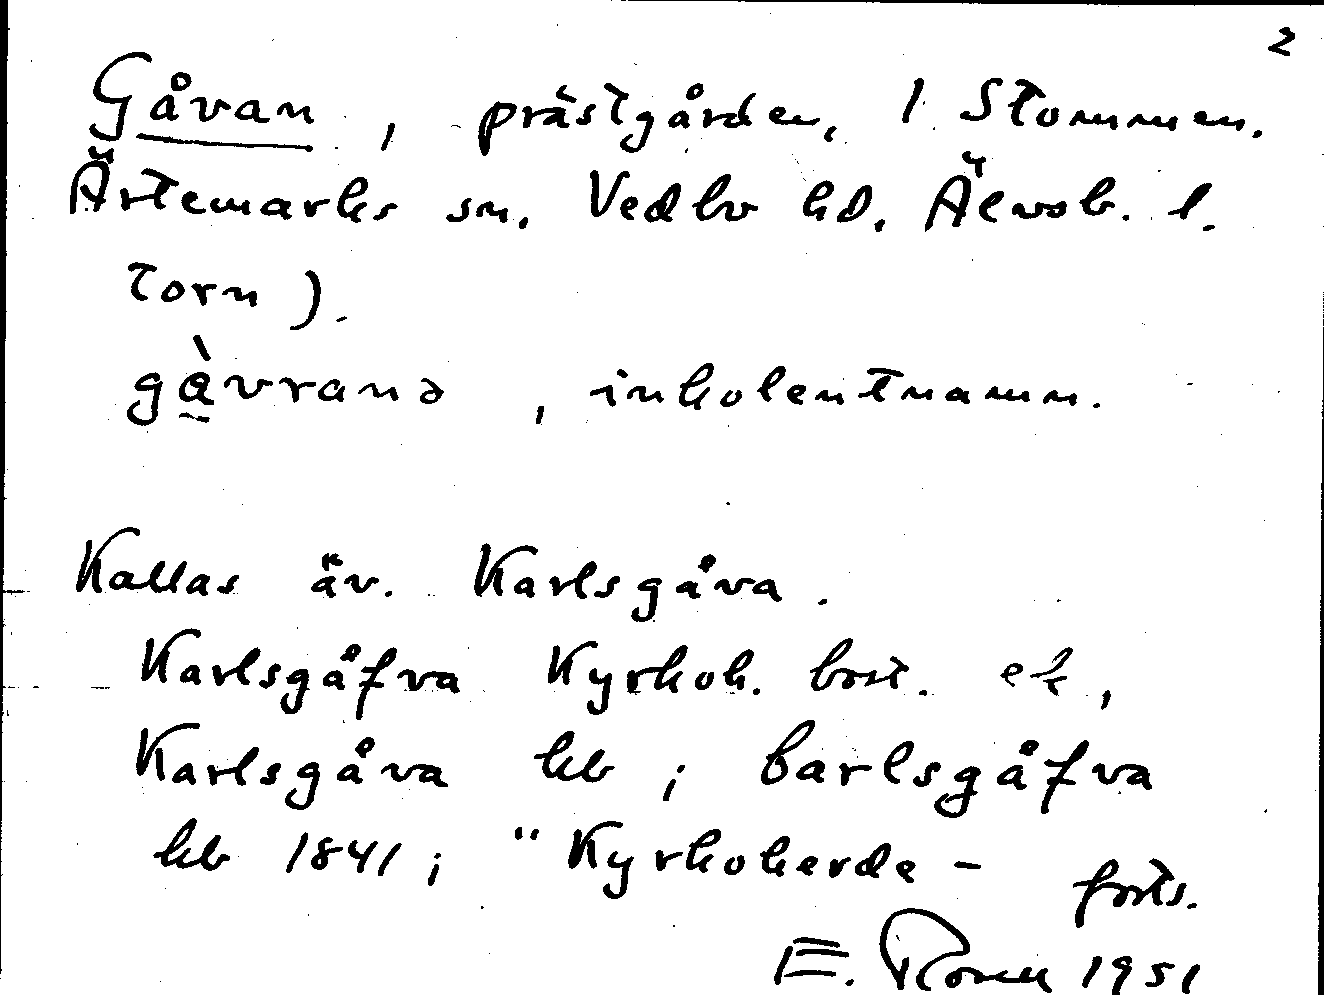 2
Gåvan, prästgården, 1 Stommen.
Ärtemarks sn. Vedbo hd. Älvsb. l.
torn).
gåvrana, inkolentnamn.
Kallas äv. Karlsgåva.
Karlsgåfva Kyrkoh. bost. ek,
Karlsgåva kb; Carlsgåfva
kb 1841; "Kyrkoherde- forts.
E. 1951